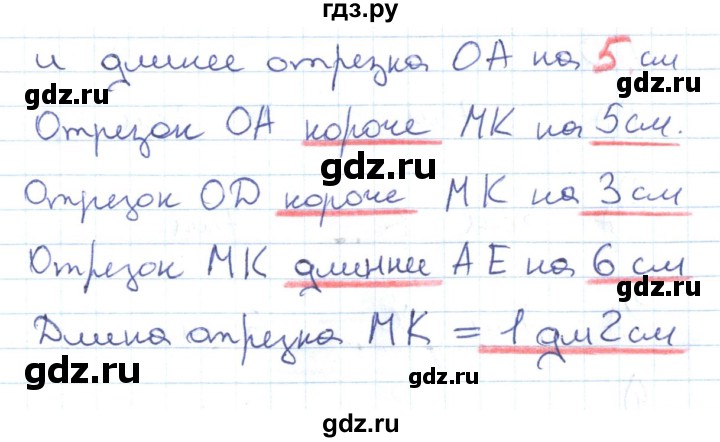 гдз.ру
и длинее отрезка ОА на 5 см
gdz.ru gdz.ru
Отрезок ОА короче МК на 5 см.
gdz.ru
Отрезок OD короче МК на 3 см
gdz.ru gdz.ru
Отрезок МК длиннее АЕ на 6 см
gdz.ru
Длина отрезка МК = 1 дм 2 см
gdz.ru gdz.ru
gdz.ru